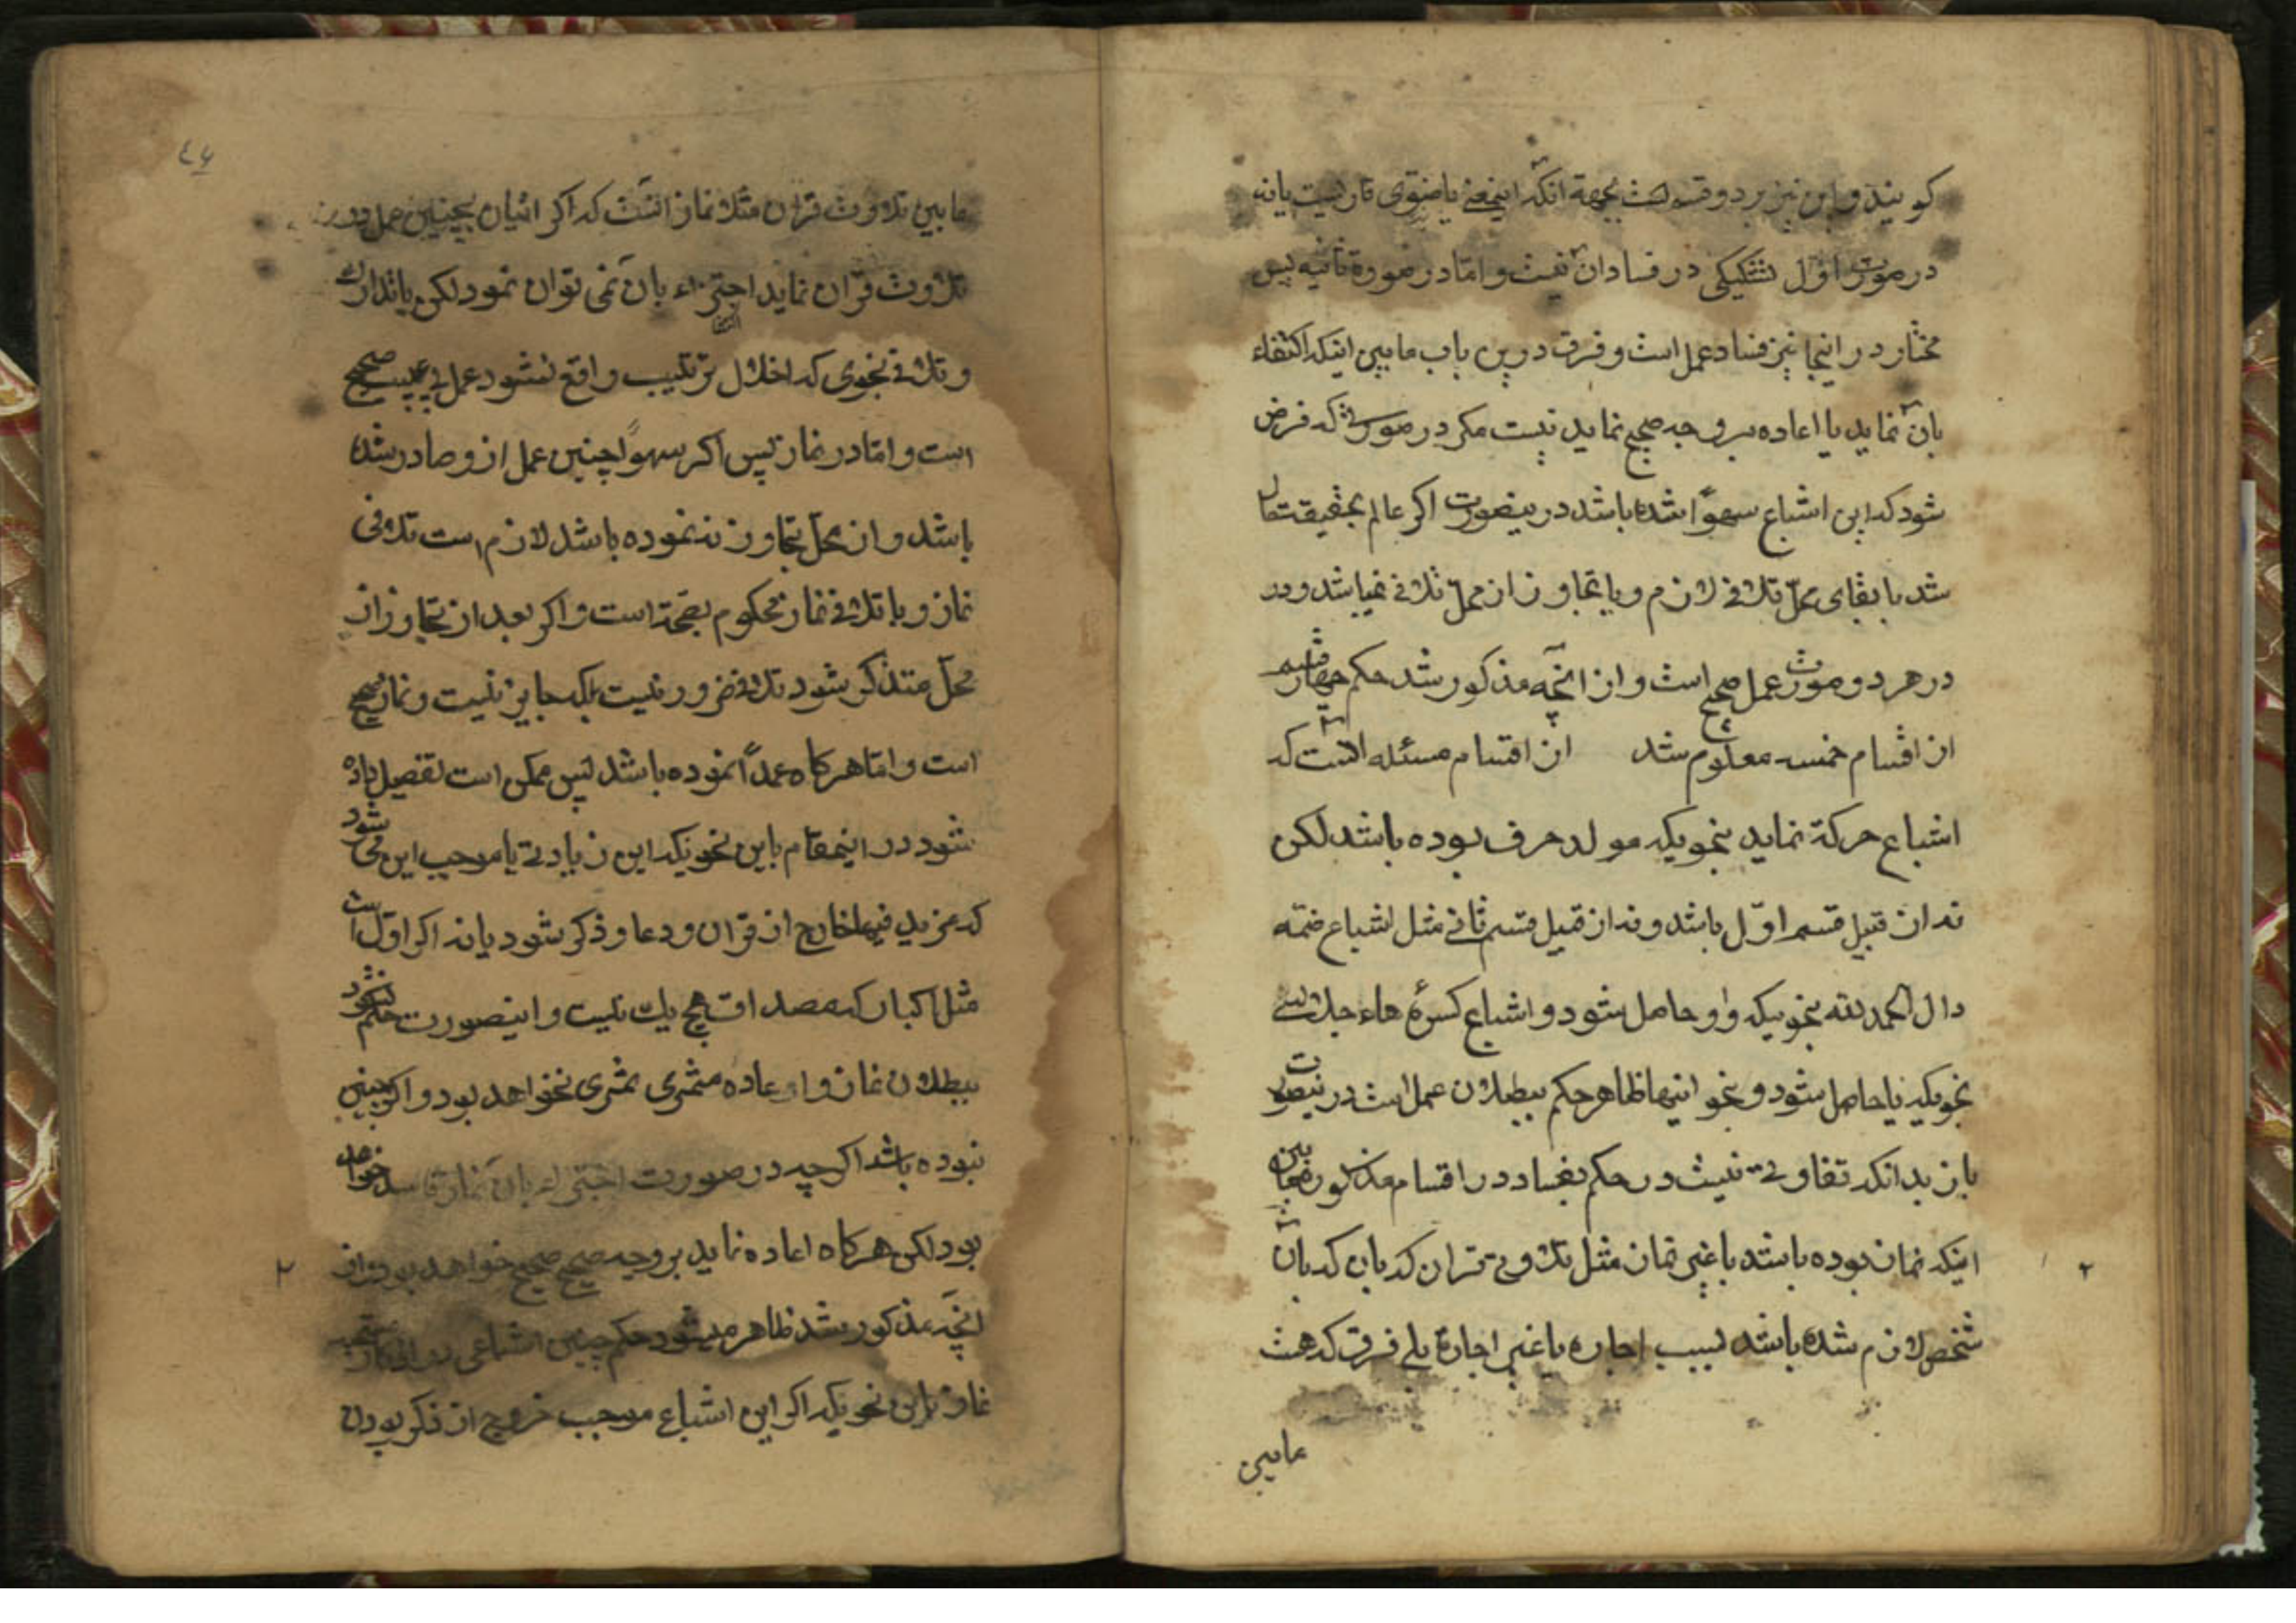 کویند و این نیز بر دو قسم است بجهة انکه اینمعنی یا منوی قاریست یا نه
در صورت اول تشکیکی در فساد آن نیست و امّا در صورة ثانیه پس
مختار در اینجا نیز فساد عمل است و فرق درین باب مابین اینکه اکتفاء
بآن نماید یا اعاده بر وجه صحیح نماید نیست مکر در صورتی که فرض
شود که این اشباع سهواً شده باشد در ینصورت اکر عالم بحقیقت حال
شد با بقای محلّ تلافی لازم و با تجاوز از محلّ تلافی نمیباشد و در
در هر دو صورت عمل صحیح است و از انچه مذکور شد حکم چهار قسم
از اقسام خمسه معلوم شد از اقسام مسئله انست که
اشباع حرکة نماید بنحویکه مولد حرف بوده باشد لکن
نه از قبیل قسم اوّل باشد و نه از قبیل قسم ثانی مثل اشباع ضمّه
دال الحمد لله بنحویکه واو حاصل شود و اشباع کسرهٔ هاء جلاله
بنحویکه یا حاصل شود و نحو اینها ظاهر حکم ببطلان عمل است در ینصورت
باز بدانکه تفاوتی نیست در حکم بفساد در اقسام مذکوره مابین
اینکه نماز بوده باشد یا غیر نماز مثل تلاوت قران که باین که بآن
شخص لازم شده باشد بسبب اجاره یا غیر اجارة بلی فرق که هست
مابین
٤٦
مابین تلاوت قران مثلا نماز انست که اکر اتیان بچنین عمل در
تلاوت قران نماید اجتزاء بآن نمی توان نمود لکن با تدارک
و تلافی بنحوی که اخلال ترتیب واقع نشود عمل بی عیب صحیح
است و امّا در نماز پس اکر سهواً چنین عمل از و صادر شده
باشد و از محلّ تجاوز ننموده باشد لازم است تلافی
نماز و با تلافی نماز محکوم بصحّة است و اکر بعد از تجاوز از
محلّ متذکر شود تلافی ضرور نیست بلکه جایز نیست و نماز صحیح
است و امّا هرکاه عمداً نموده باشد پس ممکن است تفصیل داده
شود در اینمقام باین نحو یکه این زیادتی یا موجب این می شود
که مزید فیها خارج از قران و دعا و ذکر شود یا نه اکر اوّل است
مثل اکبار که مصداق هیچ یک نیست و اینصورت حکم نشود
ببطلان نماز و اعاده مثمری ثمری نخواهد بود و اکر چنین
نبوده باشد اکرچه در صورت اجتزاء بآن نماز فاسد خواهد
بود لکن هرکاه اعاده نماید بر وجه صحیح صحیح خواهد بود و از
۲
انچه مذکور شد ظاهر میشود حکم چنین اشباعی در اذکار مستحبه
نماز باین نحو یکه اکر این اشباع موجب خروج از ذکر بودن